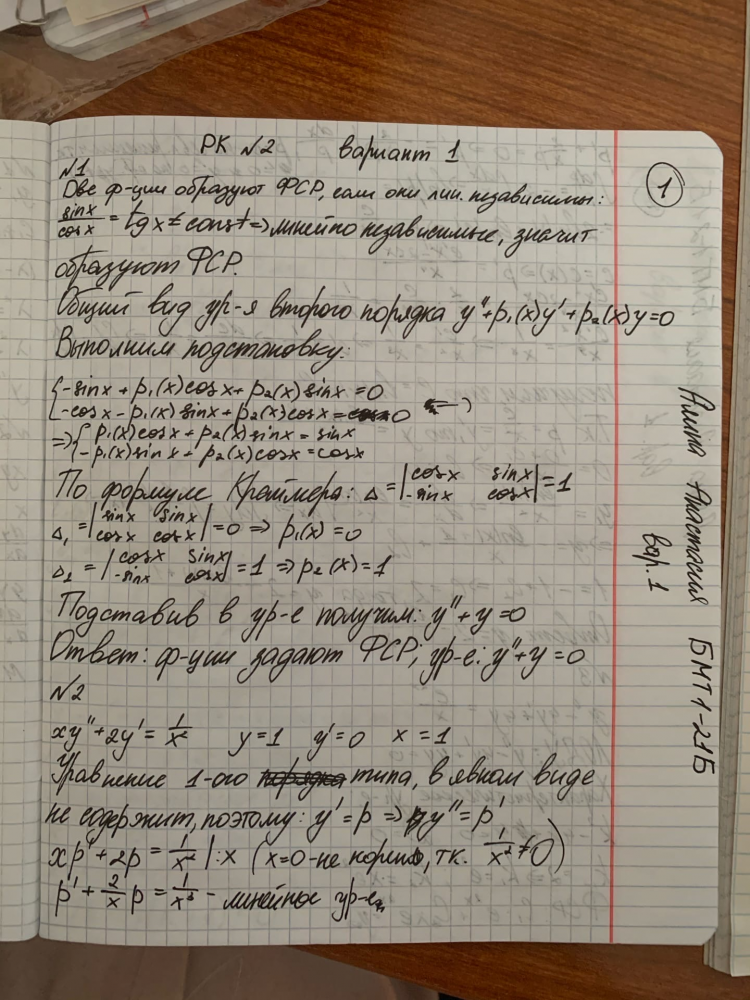 РК №2 вариант 1
№1
①
Две ф-ции образуют ФСР, если они лин. независимы:
sinx/cosx = tgx ≠ const ⇒ линейно независимые, значит
образуют ФСР.
Общий вид ур-я второго порядка y''+p₁(x)y'+p₂(x)y=0
Выполним подстановку:
{-sinx + p₁(x)cosx + p₂(x)sinx = 0
{-cosx - p₁(x)sinx + p₂(x)cosx = 0
⇒{p₁(x)cosx + p₂(x)sinx = sinx
{-p₁(x)sinx + p₂(x)cosx = cosx
По формуле Краймера: Δ = |cosx sinx; -sinx cosx| = 1
Δ₁ = |sinx sinx; cosx cosx| = 0 ⇒ p₁(x) = 0
Δ₂ = |cosx sinx; -sinx cosx| = 1 ⇒ p₂(x) = 1
Подставив в ур-е получим: y''+y=0
Ответ: ф-ции задают ФСР; ур-е: y''+y=0
№2
xy''+2y' = 1/x² y=1 y'=0 x=1
Уравнение 1-ого типа, в явном виде
не содержит, поэтому: y'=p ⇒ y''=p'
xp'+2p = 1/x² |:x (x=0-не корень, тк. 1/x² ≠0)
p' + 2/x p = 1/x³ - линейное ур-е
Алина Анастасия БМТ1-21Б
вар. 1